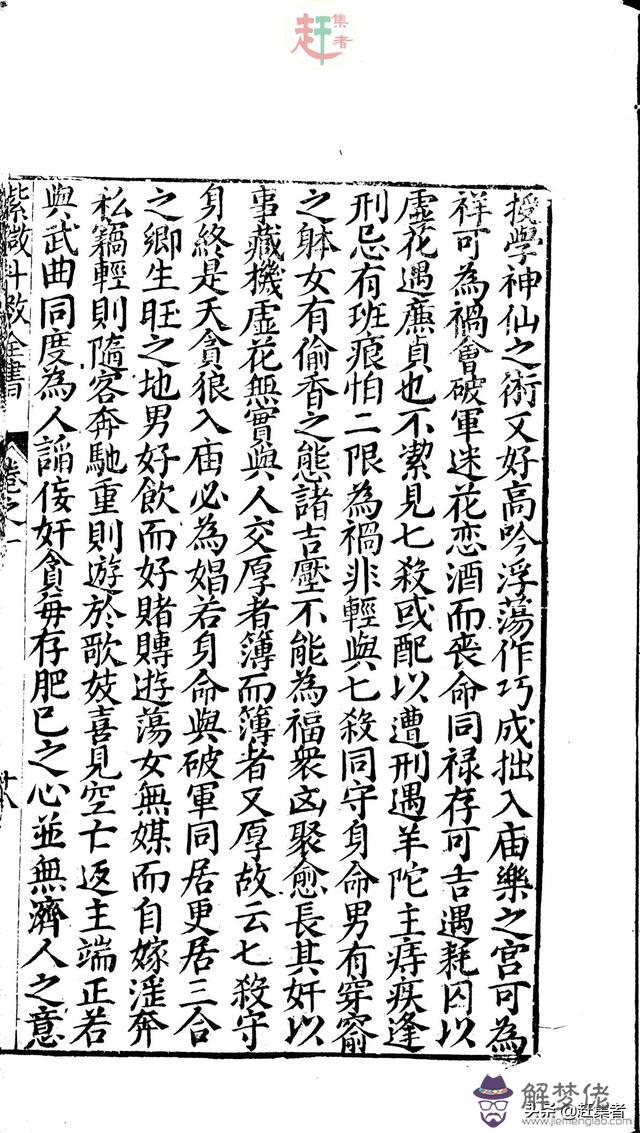 赶集者
授學神仙之術又好高吟浮蕩作巧成拙入庙樂之宮可為
祥可為禍會破軍迷花恋酒而丧命同禄存可吉遇耗囚以
虛花遇廉貞也不潔見七殺或配以遭刑遇羊陀主痔疾逢
刑忌有班痕怕二限為禍非輕與七殺同守身命男有穿窬
之躰女有偷香之態諸吉壓不能為福衆凶聚愈長其奸以
事藏機虛花無實與人交厚者簿而簿者又厚故云七殺守
身終是夭貪狼入庙必為娼若身命與破軍同居更居三合
之鄉生旺之地男好飲而好賭賻遊蕩女無媒而自嫁滛奔
私竊輕則隨客奔馳重則遊於歌妓喜見空亡返主端正若
與武曲同度為人謟侫奸貪每存肥已之心並無濟人之意
紫微斗数全書 卷之一 十八
解梦佬
www.jiemenglao.com
头条@赶集者